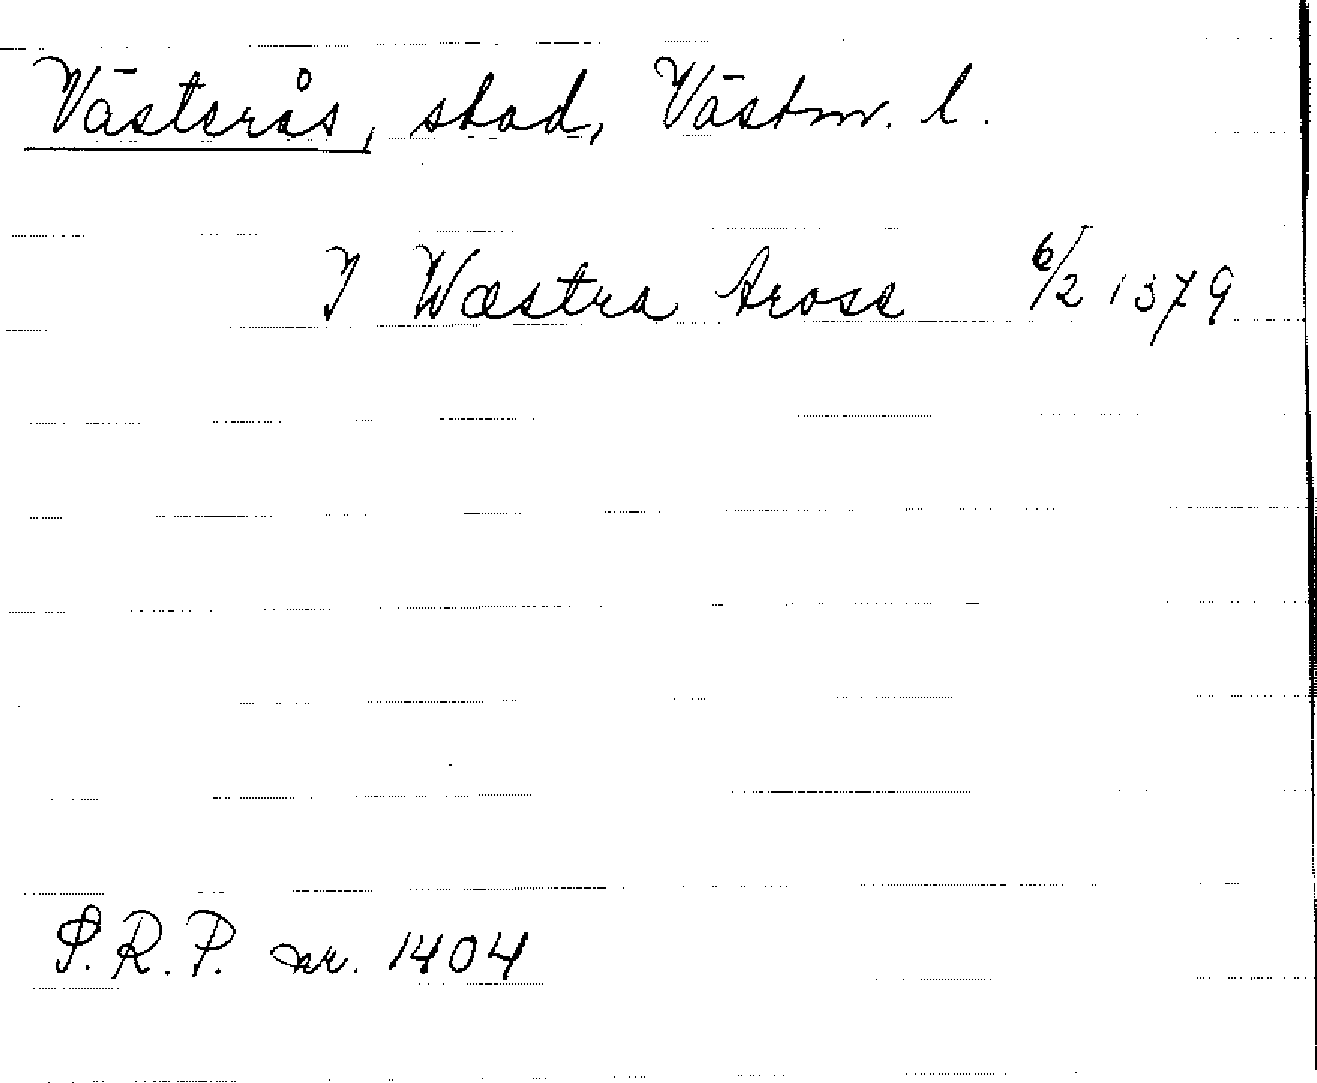 Västerås, stad, Västm. l.
I Wæstra Aross 6/2 1379
S.R.P. nr. 1404